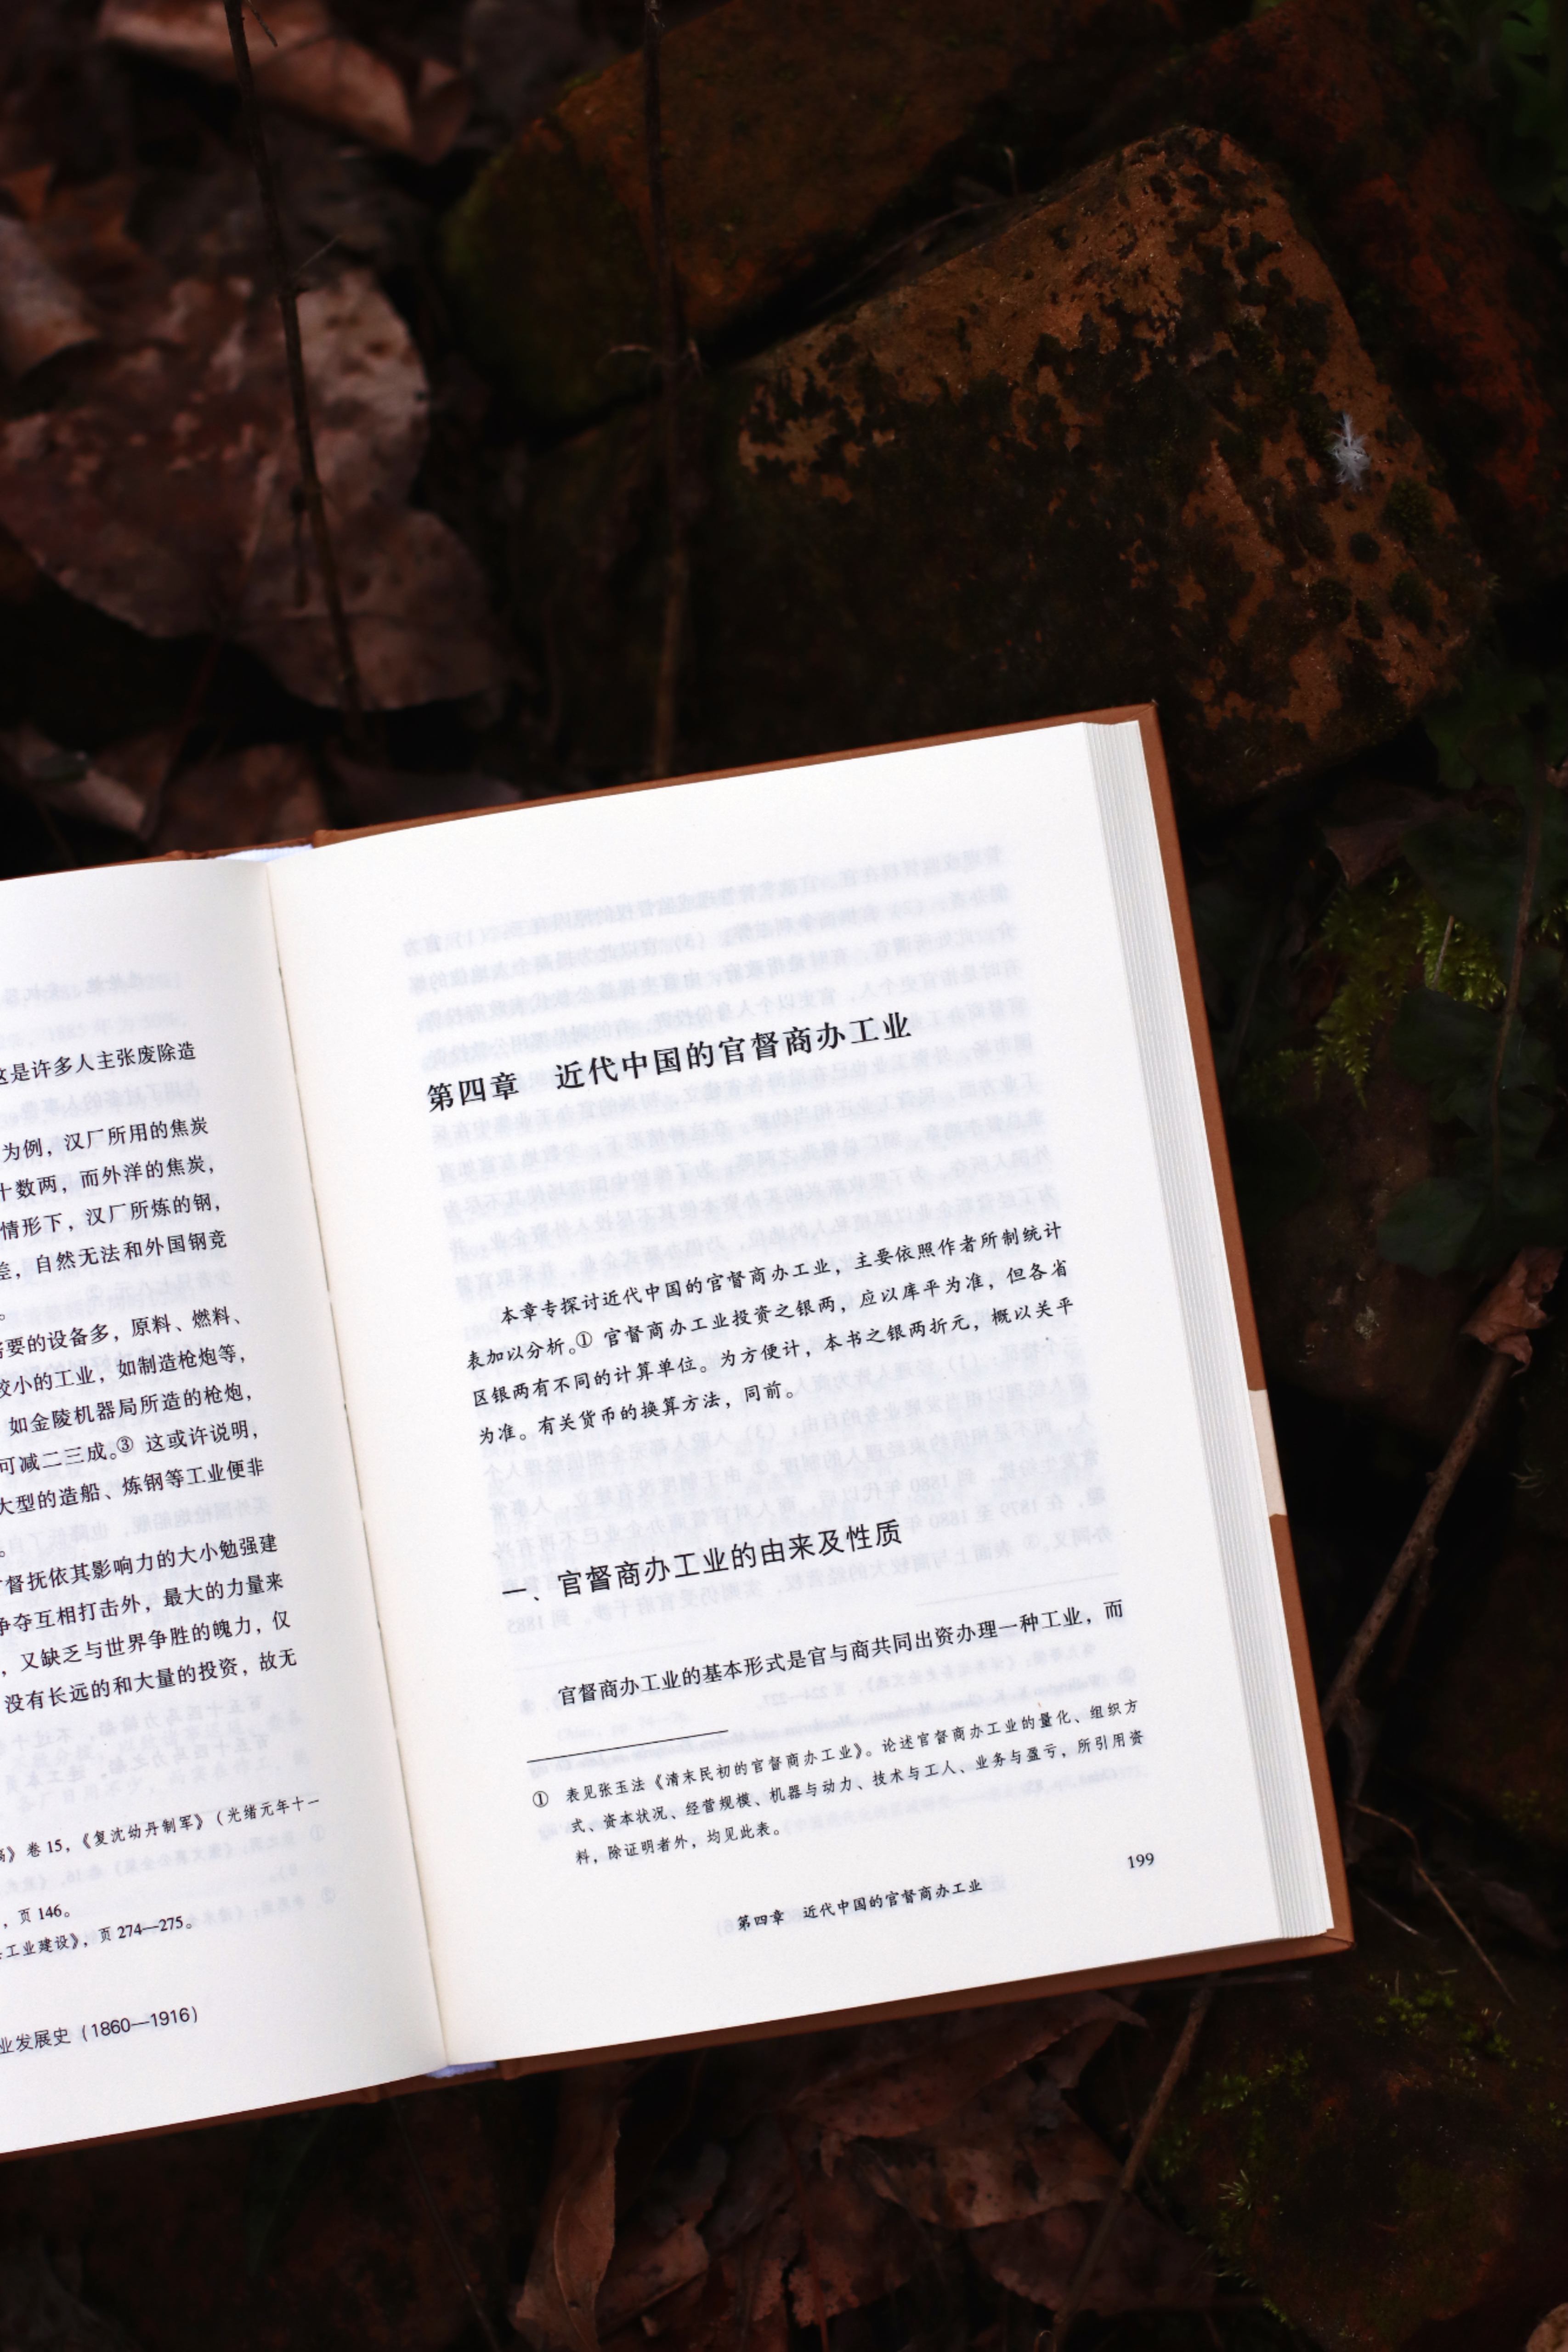 这是许多人主张废除造
为例，汉厂所用的焦炭
十数两，而外洋的焦炭，
情形下，汉厂所炼的钢，
差，自然无法和外国钢竞
。
需要的设备多，原料、燃料、
较小的工业，如制造枪炮等，
如金陵机器局所造的枪炮，
可减二三成。③ 这或许说明，
大型的造船、炼钢等工业便非
。
督抚依其影响力的大小勉强建
争夺互相打击外，最大的力量来
，又缺乏与世界争胜的魄力，仅
没有长远的和大量的投资，故无
》卷 15，《复沈幼丹制军》（光绪元年十一
，页 146。
工业建设》，页 274—275。
业发展史（1860—1916）
第四章 近代中国的官督商办工业
本章专探讨近代中国的官督商办工业，主要依照作者所制统计
表加以分析。① 官督商办工业投资之银两，应以库平为准，但各省
区银两有不同的计算单位。为方便计，本书之银两折元，概以关平
为准。有关货币的换算方法，同前。
一、官督商办工业的由来及性质
官督商办工业的基本形式是官与商共同出资办理一种工业，而
① 表见张玉法《清末民初的官督商办工业》。论述官督商办工业的量化、组织方
式、资本状况、经营规模、机器与动力、技术与工人、业务与盈亏，所引用资
料，除证明者外，均见此表。
第四章 近代中国的官督商办工业
199